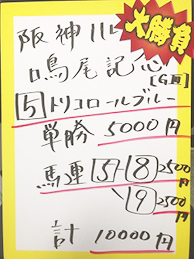 大勝負
阪神11R
鳴尾記念
[GⅢ]
5トリコロールブルー
単勝 5000円
馬連 5-8 2500円
9 2500円
計 10000円